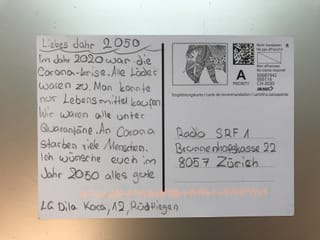 Liebes Jahr 2050
Im Jahr 2020 war die
Corona-krise. Alle Läder
waren zu. Man konnte
nur Lebensmittel kaufen
Wir waren alle unter
Quarantäne. An Corona
starben viele Menschen.
Ich wünsche euch im
Jahr 2050 alles gute
LG Dila Koca, 12, Rüdtligen
A
PRIORITY
Nicht frankieren
Ne pas affranchir
Non affrancare
50087942
000115
DIE POST
Empfehlungskarte / carte de recommandation / cartolina
Radio SRF 1
Brunnenhofstrasse 22
8057 Zürich